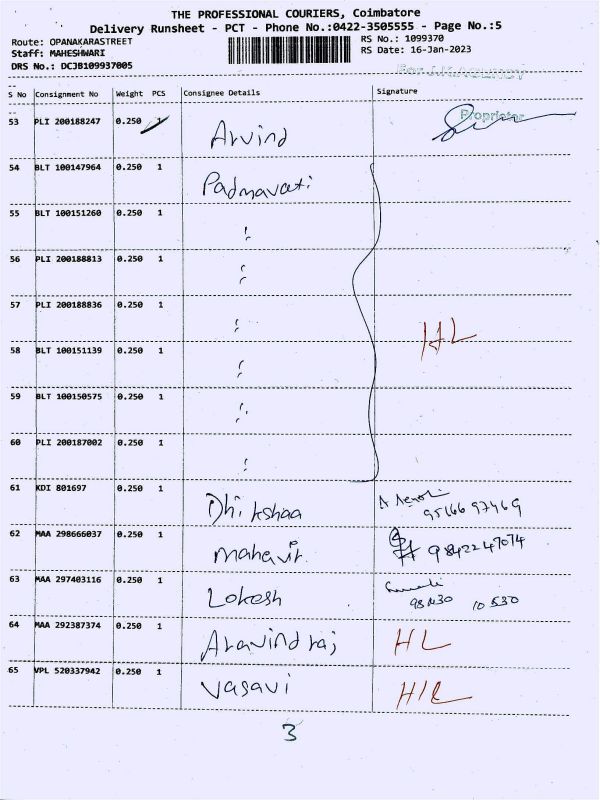 THE PROFESSIONAL COURIERS, Coimbatore
Delivery Runsheet - PCT - Phone No.:0422-3505555 - Page No.:5
Route: OPANAKARASTREET
RS No.: 1099370
Staff: MAHESHWARI
RS Date: 16-Jan-2023
DRS No.: DCJB109937005
For J.K.AGENCY
S No Consignment No Weight PCS Consignee Details Signature
53 PLI 200188247 0.250 1 Arvind Proprietor
54 BLT 100147964 0.250 1 Padmavati
55 BLT 100151260 0.250 1 "
56 PLI 200188813 0.250 1 "
57 PLI 200188836 0.250 1 " HL
58 BLT 100151139 0.250 1 "
59 BLT 100150575 0.250 1 "
60 PLI 200187002 0.250 1 "
61 KDI 801697 0.250 1 Dhikshaa
62 MAA 298666037 0.250 1 Mahavir 9842247074
63 MAA 297403116 0.250 1 Lokesh
64 MAA 292387374 0.250 1 Aravind raj HL
65 VPL 520337942 0.250 1 Vasavi
3